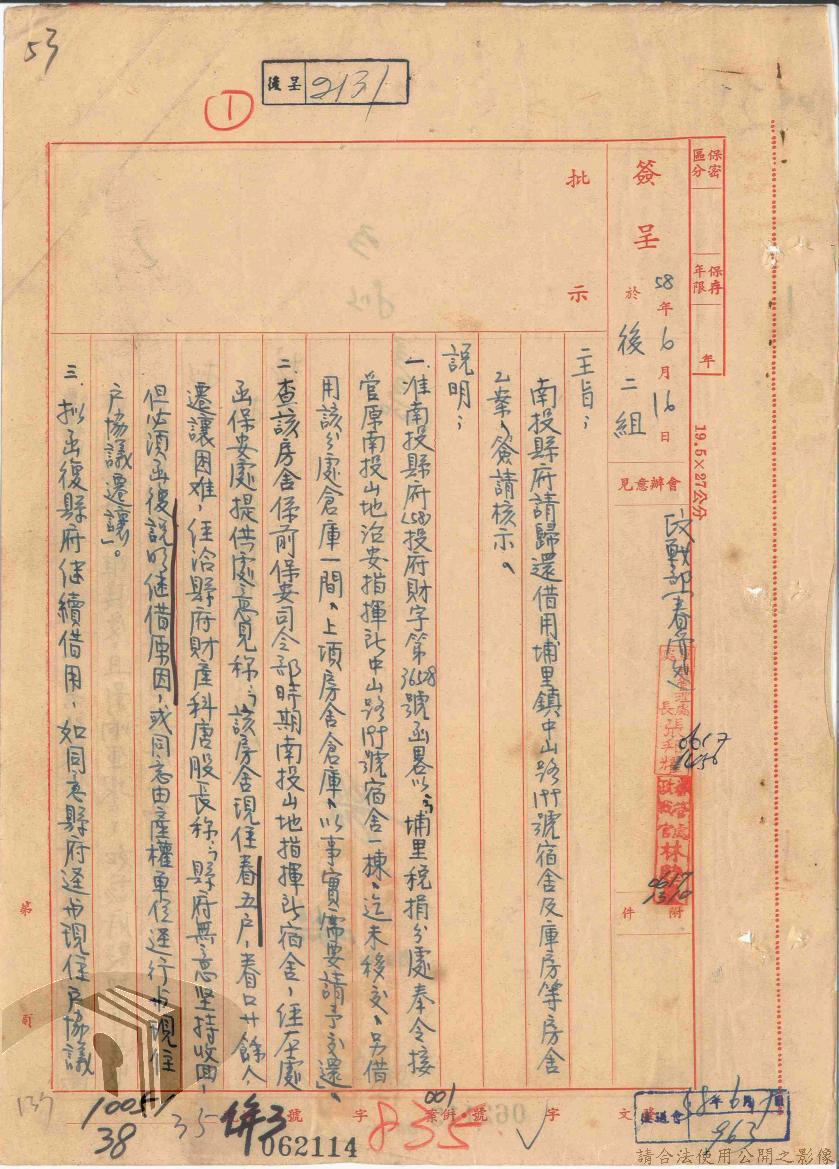 53
後呈 2131
①
保密區分
保存年限
年
19.5×27公分
簽呈
58年6月16日
於後二組
會辦意見
政戰部眷管處
張
0617
1450
林
0617
1310
附件
批示
主旨：
南投縣府請歸還借用埔里鎮中山路199號宿舍及庫房等房舍
乙案、簽請核示。
說明：
一、准南投縣府(58)投府財字第36528號函畧以「埔里稅捐分處奉令接
管原南投山地治安指揮所中山路199號宿舍一棟、迄未移交、另借
用該分處倉庫一間、上項房舍倉庫、以事實需要請予交還」。
二、查該房舍係前保安司令部時期南投山地指揮所宿舍，經本處
函保安處提供處意見稱「該房舍現住眷五戶，眷口廿餘人，
遷讓困难，經洽縣府財產科唐股長稱「縣府無意坚持收回，
但必須函復說明继借原因，或同意由產權單位逕行與現住
戶協議遷讓」。
三、拟函復縣府继續借用，如同意縣府逕與現住戶協議
第
頁
139
10051
38
35
併3
062114
字
號
001
835
併案
號
字
文
58年6月
963
請合法使用公開之影像